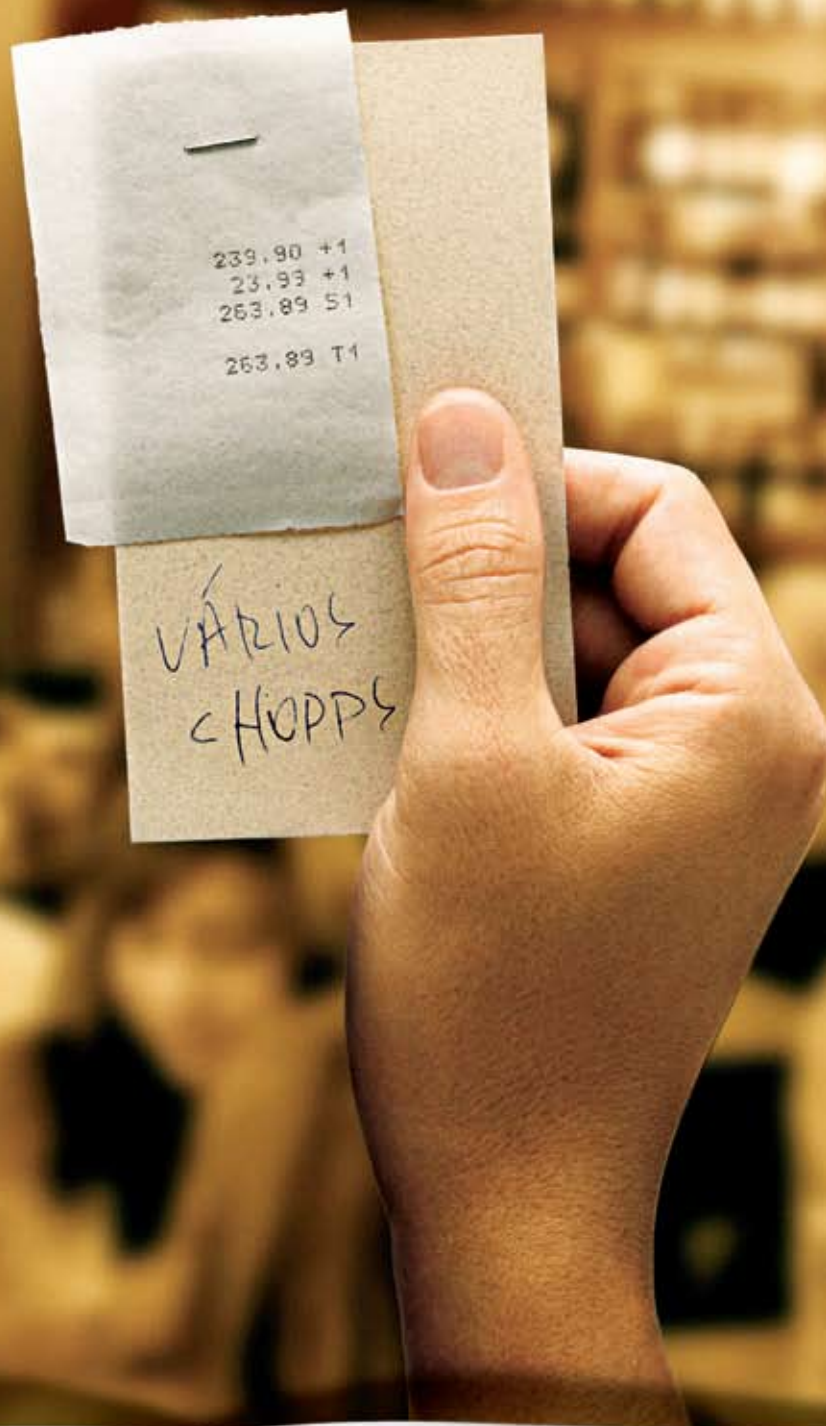 239.90 +1
23.99 +1
263.89 S1
263.89 T1
VÁRIOS
CHOPPS